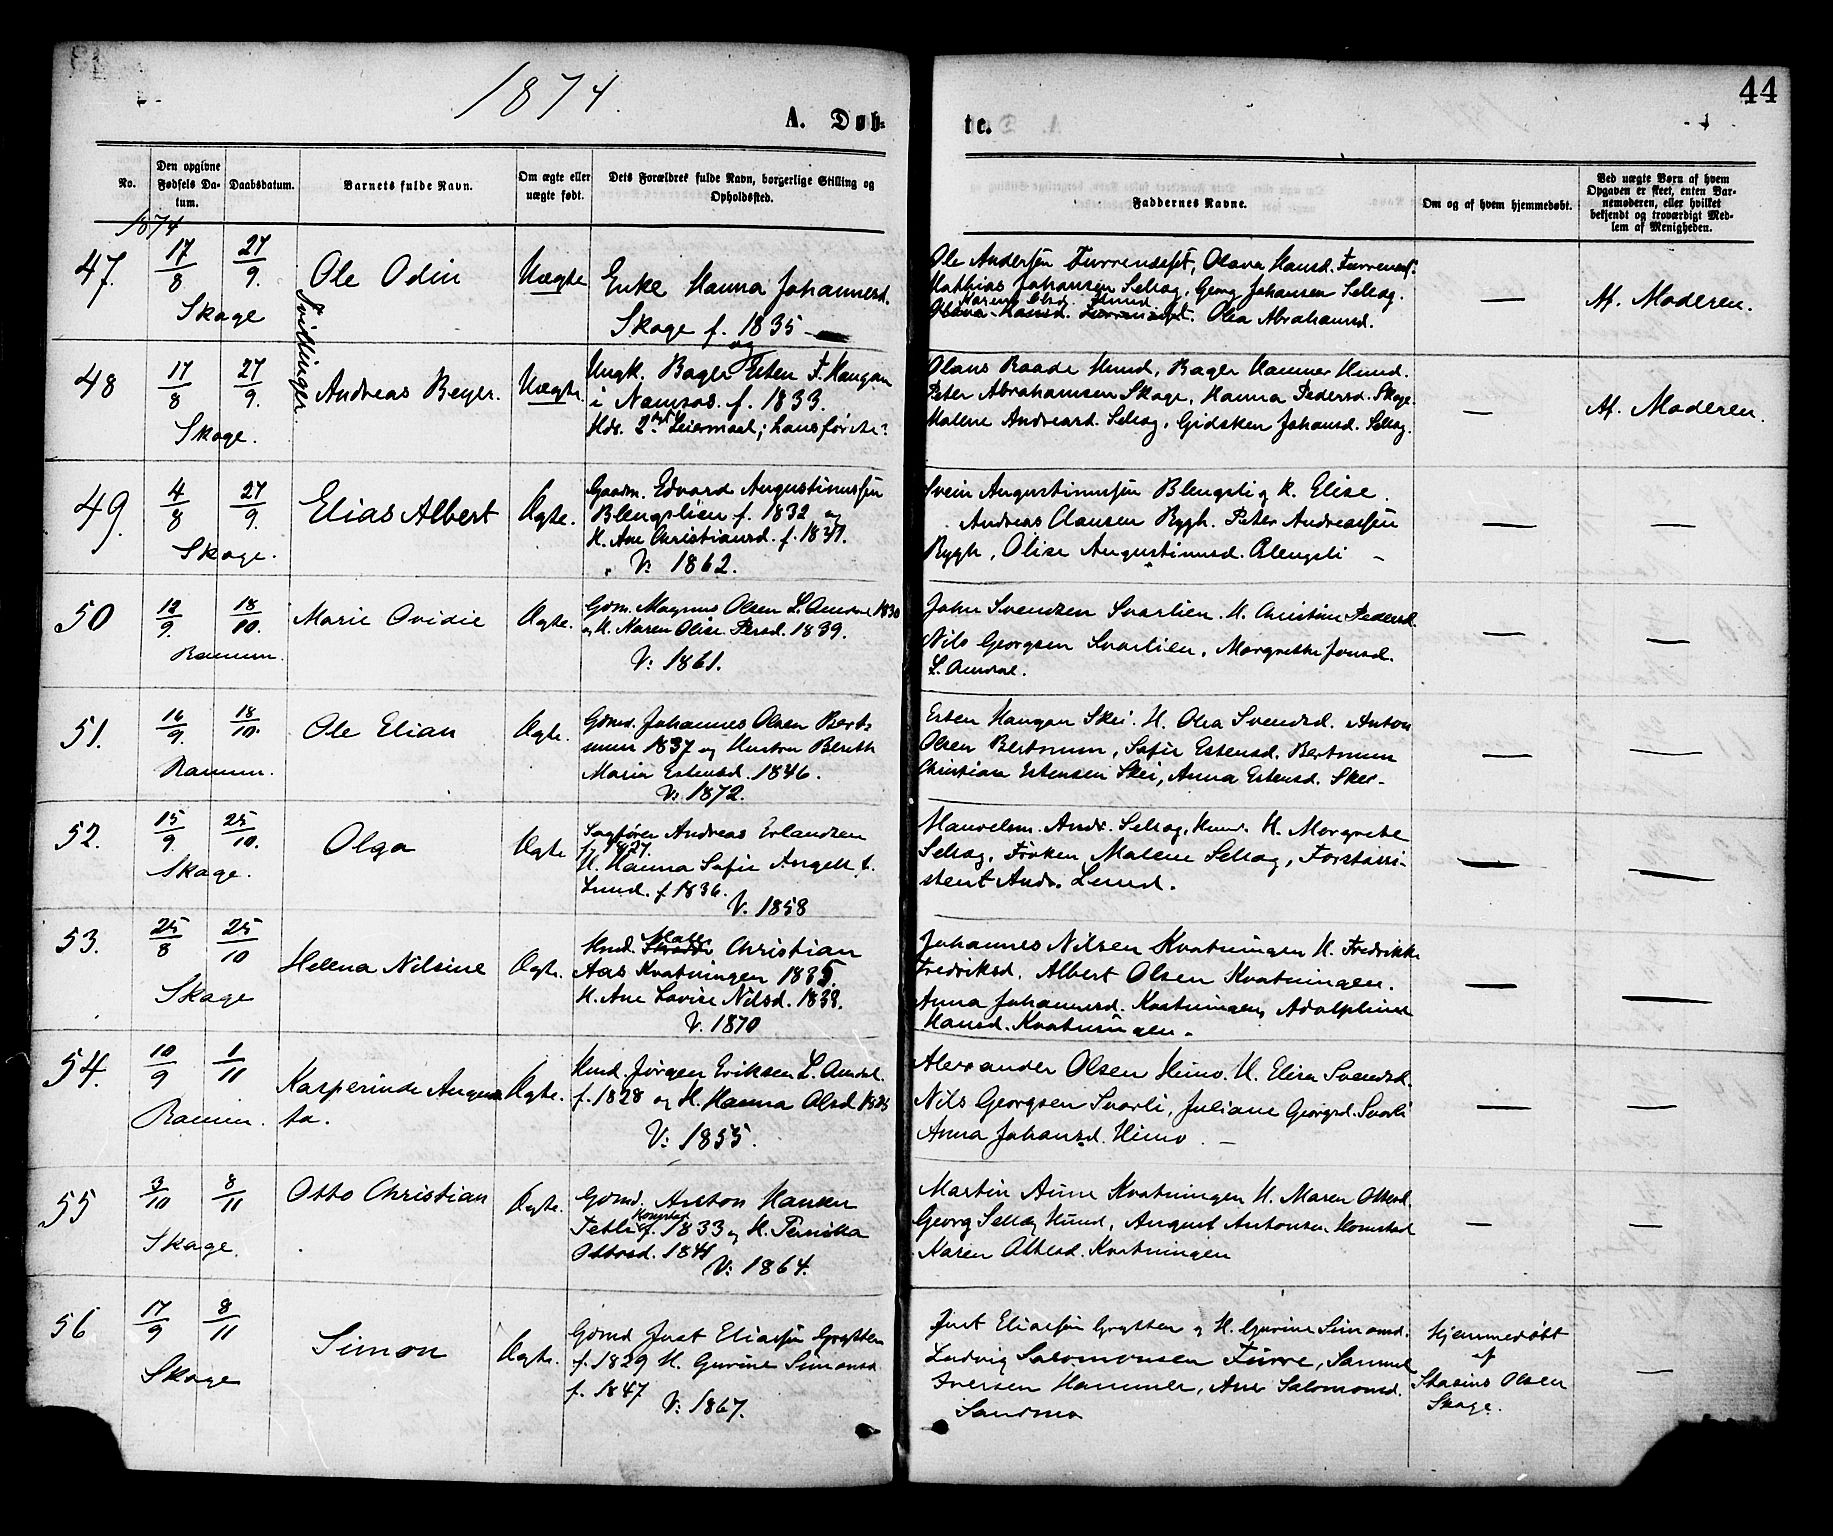 1874.
44
A. Døb-
te.
No.
Den opgivne Fødsels Da-tum.
Daabsdatum.
Barnets fulde Navn.
Om ægte eller uægte født.
Dets Forældres fulde Navn, borgerlige Stilling og Opholdssted.
Faddernes Navne.
Om og af hvem hjemmedøbt.
Ved uægte Børn af hvem Opgaven er skeet, enten Bar-nemoderen, eller hvilket bekjendt og troværdigt Med-lem af Menigheden.
1874
47. 17/8 27/9. Ole Odin Uægte
Skage
Tvillinger
Enke Hanna Johannesd.
Skage f. 1835
og
Ole Andersen Furrendeset, Olava Hansd.
Mathias Johansen Selrog, Georg Johansen Selrog.
Olea Abrahamsd.
—
Af. Moderen.
48 17/8 27/9. Andreas Beyer. Uægte.
Skage.
Ungk. Bager Esten F. Haugan
i Namsos. f. 1833.
Hds. 2det Leiermaal; hans første
Olaus Raade Hund, Bager Hammer Hund.
Peter Abrahamsen Skage, Hanna Pedersd. Skage
Malene Andreasd. Selrog, Gidsken Johansd. Selrog.
—
Af. Moderen.
49. 4/8 27/9. Elias Albert Ægte.
Skage.
Gaardm. Edvard Augustinussen
Blengslien f. 1832 og
H. Ane Christiansd. f. 1837.
V: 1862.
Svein Augustinussen Blengsli og K. Elise.
Andreas Clausen Bygh. Peter Andreassen
Bygh, Olise Augustinusd. Blengsli —
— —
50 12/9. 18/10. Marie Ovidie Ægte.
Ranum.
Gdm. Magnus Olsen L. Amdal 1830
og H. Karen Olise Persd. 1839.
V: 1861.
John Svendsen Svarlien. H. Christine Pedersd.
Nils Georgsen Svarlien, Margrethe Jonsd.
L. Amdal.
— —
51. 16/9. 18/10. Ole Elian Ægte.
Ranum.
Gdmd. Johannes Olsen Bert-
num 1837 og Hustru Bereth
Maria Estensd. 1846.
V: 1872.
Esten Haugan Skei. H. Olea Svendsd. Anton
Olsen Bertnum, Sofie Estensd. Bertnum
Christian Estensen Skei, Anna Estensd. Skei —
— —
52. 15/9. 25/10. Olga Ægte
Skage.
Sagfører Andreas Erlandsen
f. 1827.
H. Hanna Sofie Angell f.
Lund. f. 1836.
V. 1858
Handelsm. Andr. Selrog, Hund. H. Margrete
Selrog, Frøken Malene Selrog, Forstassi-
stent Andr. Lund.
— —
53. 25/8 25/10 Helena Nilsine Ægte.
Skage
Hmd. Christian
Aas Kvatningen 1835.
H. Ane Lovise Nilsd. 1838.
V. 1870
Johannes Nilsen Kvatningen H. Fredrikke
Fredriksd. Albert Olsen Kvatningen.
Anna Johannesd. Kvatningen, Adolphine
Hansd. Kvatningen.
— —
54. 10/9 1/11 Kasperinde Augus- Ægte.
Ranum. ta.
Hmd. Jørgen Eriksen L. Amdal.
f. 1828 og H. Hanna Olsd.
V: 1855.
Alexander Olsen Himo. H. Elisa Svendsd.
Nils Georgsen Svarli, Juliane Georgsd. Svarli
Anna Johansd. Himo —
— —
55 3/10 8/11 Otto Christian Ægte.
Skage.
Gdmd. Anton Hansen
f. 1833 og H. Pernilla
Ottosd. 1841
V: 1864.
Martin Aune Kvatningen H. Maren Ottesd.
Georg Selrog Hund, August Antonsen Homstad
Karen Ottesd. Kvatningen
— —
56 17/9 8/11 Simon Ægte.
Skage
Gdmd Just Eliassen Grytten
f. 1829 H. Gurine Simonsd.
f. 1847
V: 1867.
Just Eliassen Grytten og H. Gurine Simonsd.
Ludvig Salomonsen Furre, Samuel
Iversen Hammer, Ane Salomonsd.
Sandmo
Hjemmedøbt
af
Stasius Olsen
Skage.
—